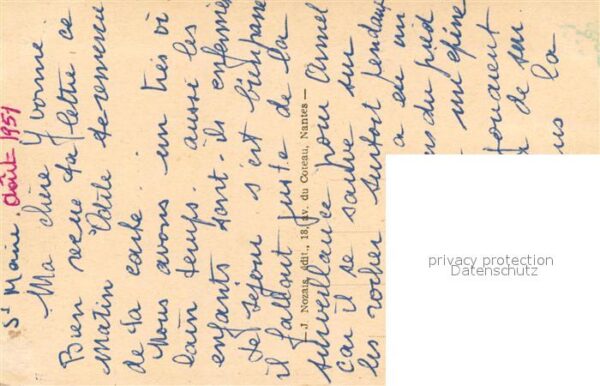 St Marie. Août 1951
Ma chère Yvonne
Bien reçue ta lettre ce
matin Odile te remercie
de ta carte.
Nous avons un très vi
lain temps. aussi les
enfants sont-ils enfermés
le séjour s'est bien passé
il fallait juste de la
surveillance pour
car il se sauve sur
les rocher surtout pendant
a eu un
du pied
jouaient
de son
la
— J. Nozais, édit., 18, av. du Coteau, Nantes —
privacy protection
Datenschutz